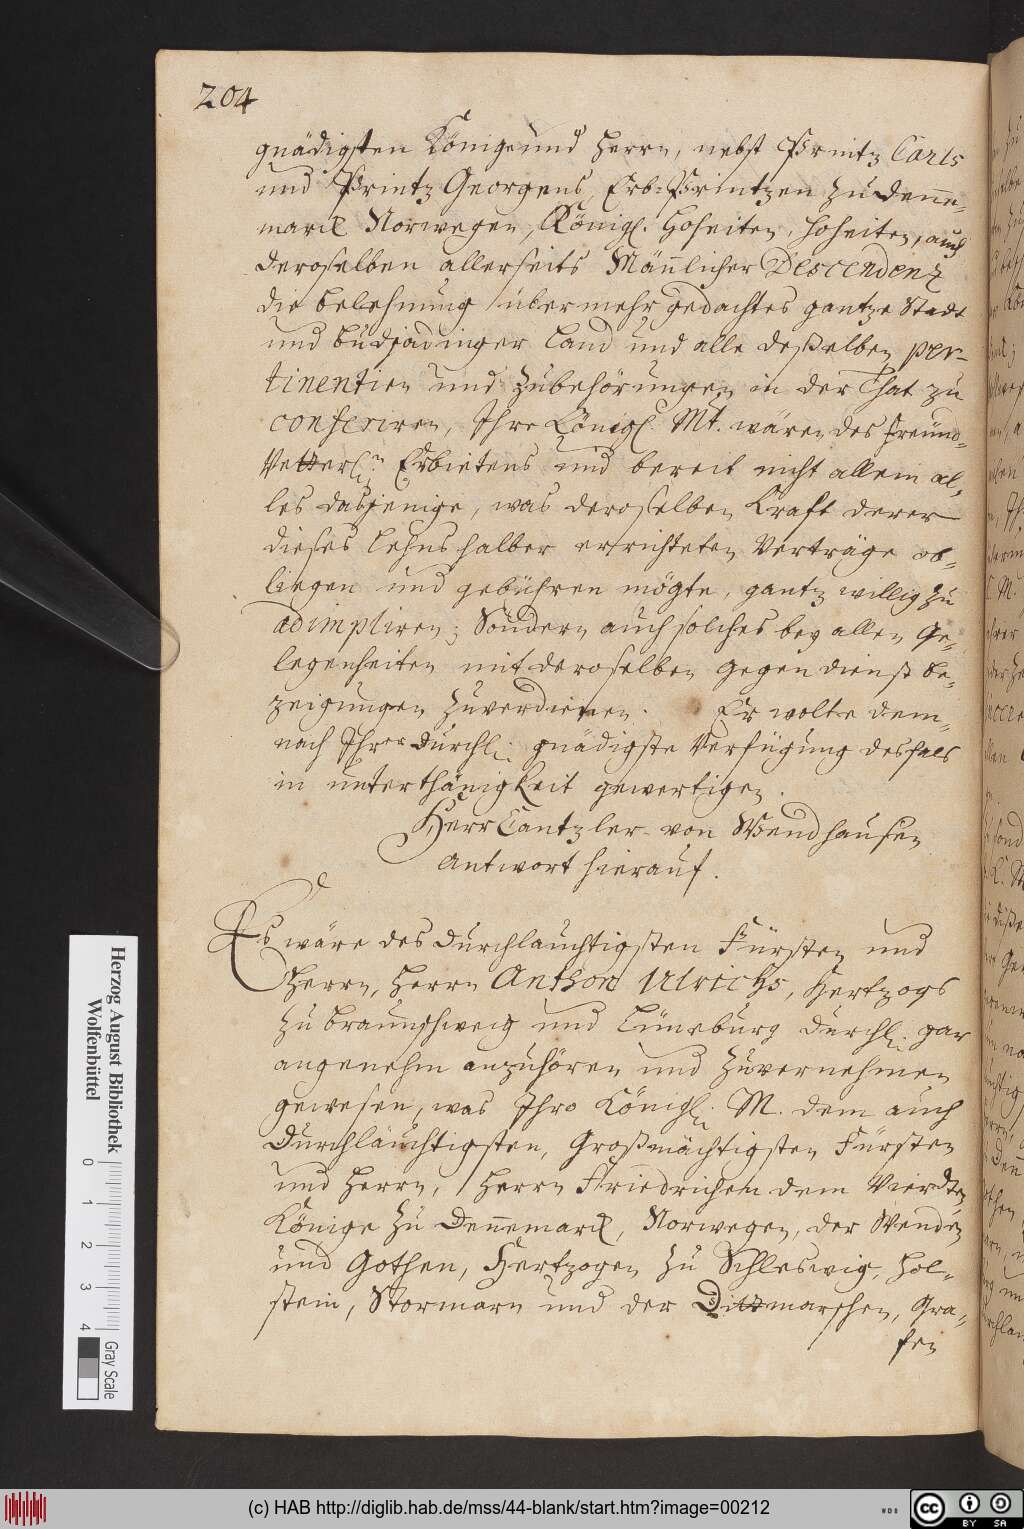 204
gnädigsten König und Herrn, nebst Printz Carls
und Printz Georgens, Erb-Printzen zu Denne-
marck Norwegen, Königl. Hoheiten, Hoheiten, auch
deroselben allerseits Männlicher Descendenz
die belehnung über mehr gedachtes gantze Stadt
und Budjadinger Land und alle deßelben per-
tinentien und Zubehörungen in der That zu
conferiren, Ihre Königl. Mt. wären des freund-
Vetterl.n Erbietens und bereit nicht allein al-
les dasjenige, was deroselben Kraft derer
dieses Lehns halber errichteten Verträge ob-
liegen und gebühren mögte, gantz willig zu
adimpliren; Sondern auch solches bey allen Ge-
legenheiten mit deroselben gegen dienst be-
zeigungen zuverdienen. Er wolte dem-
nach Ihrer Durchl. gnädigste Verfügung desfals
in unterthänigkeit gewertigen.
Herr Cantzler von Wendhausen
antwort hierauf.
Es wäre des Durchlauchtigsten Fürsten und
Herrn, Herrn Anthon Ulrichs, Hertzogs
zu braunschweig und Lüneburg Durchl. gar
angenehm anzuhören und zuvernehmen
gewesen, was Ihro Königl. M. dem auch
Durchläuchtigsten, Großmächtigsten Fürsten
und Herrn, Herrn Friedrichen dem Vierdten
Könige zu Dennemarck, Norwegen, der Wenden
und Gothen, Hertzogen zu Schleswig, Hol-
stein, Stormarn und der Dittmarschen, Gra-
fen
Herzog August Bibliothek
Wolfenbüttel
0 1 2 3 4
Gray Scale
(c) HAB http://diglib.hab.de/mss/44-blank/start.htm?image=00212
WDB
cc BY SA